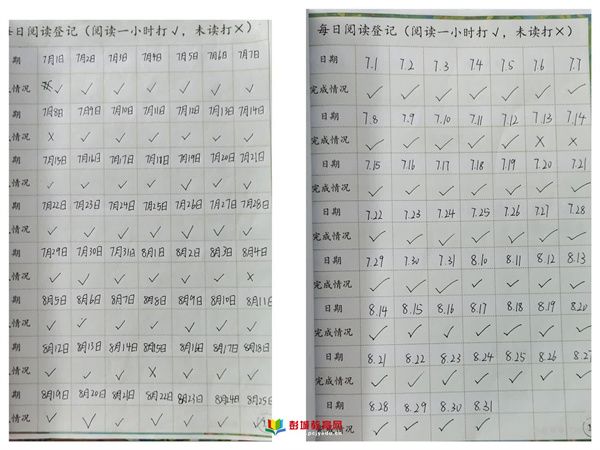 每日阅读登记（阅读一小时打√，未读打×）
期 7月1日 7月2日 7月3日 7月4日 7月5日 7月6日 7月7日
情况 ✓ ✓ ✓ ✓ ✓ ✓ ✓
期 7月8日 7月9日 7月10日 7月11日 7月12日 7月13日 7月14日
情况 × ✓ ✓ ✓ ✓ ✓ ✓
期 7月15日 7月16日 7月17日 7月18日 7月19日 7月20日 7月21日
情况 ✓ ✓ ✓ ✓ ✓ ✓ ✓
期 7月22日 7月23日 7月24日 7月25日 7月26日 7月27日 7月28日
情况 ✓ ✓ ✓ ✓ ✓ ✓ ✓
期 7月29日 7月30日 7月31日 8月1日 8月2日 8月3日 8月4日
情况 ✓ ✓ ✓ ✓ ✓ ✓ ×
期 8月5日 8月6日 8月7日 8月8日 8月9日 8月10日 8月11日
情况 ✓ ✓ ✓ ✓ ✓ ✓ ✓
期 8月12日 8月13日 8月14日 8月15日 8月16日 8月17日 8月18日
情况 ✓ ✓ ✓ × ✓ ✓ ✓
期 8月19日 8月20日 8月21日 8月22日 8月23日 8月24日 8月25日
情况 ✓ ✓ ✓ ✓ ✓ ✓
每日阅读登记（阅读一小时打√，未读打×）
日期 7.1 7.2 7.3 7.4 7.5 7.6 7.7
完成情况 ✓ ✓ ✓ ✓ ✓ ✓ ✓
日期 7.8 7.9 7.10 7.11 7.12 7.13 7.14
完成情况 ✓ ✓ ✓ ✓ ✓ × ×
日期 7.15 7.16 7.17 7.18 7.19 7.20 7.21
完成情况 ✓ ✓ ✓ ✓ ✓ ✓ ✓
日期 7.22 7.23 7.24 7.25 7.26 7.27 7.28
完成情况 ✓ ✓ ✓ ✓ ✓ ✓ ✓
日期 7.29 7.30 7.31 8.10 8.11 8.12 8.13
完成情况 ✓ ✓ ✓ ✓ ✓ ✓ ✓
日期 8.14 8.15 8.16 8.17 8.18 8.19 8.20
完成情况 ✓ ✓ ✓ ✓ ✓ ✓ ✓
日期 8.21 8.22 8.23 8.24 8.25 8.26 8.27
完成情况 ✓ ✓ ✓ ✓ ✓ ✓ ✓
日期 8.28 8.29 8.30 8.31
完成情况 ✓ ✓ ✓ ✓
彭城教育网
pcjyedu.cn